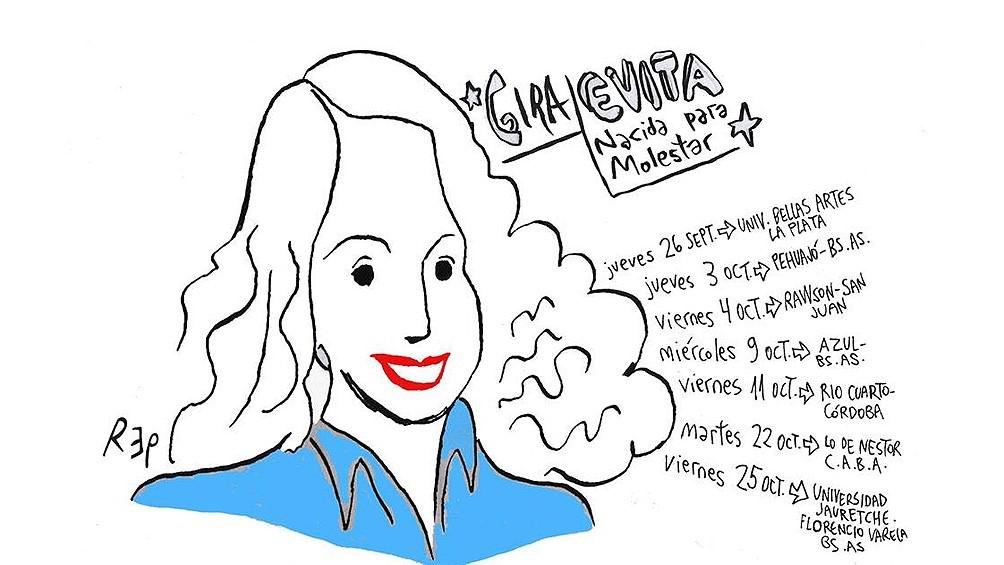 GIRA EVITA
Nacida para
Molestar
jueves 26 SEPT. ⇨ UNIV. BELLAS ARTES
LA PLATA
jueves 3 OCT. ⇨ PEHUAJÓ-BS.AS.
viernes 4 OCT. ⇨ RAWSON-SAN
JUAN
miércoles 9 OCT. ⇨ AZUL-
BS.AS.
viernes 11 OCT. ⇨ RIO CUARTO-
CÓRDOBA
martes 22 OCT. ⇨ LO DE NESTOR
C.A.B.A.
viernes 25 OCT. ⇨ UNIVERSIDAD
JAURETCHE.
FLORENCIO VARELA
BS.AS
REP